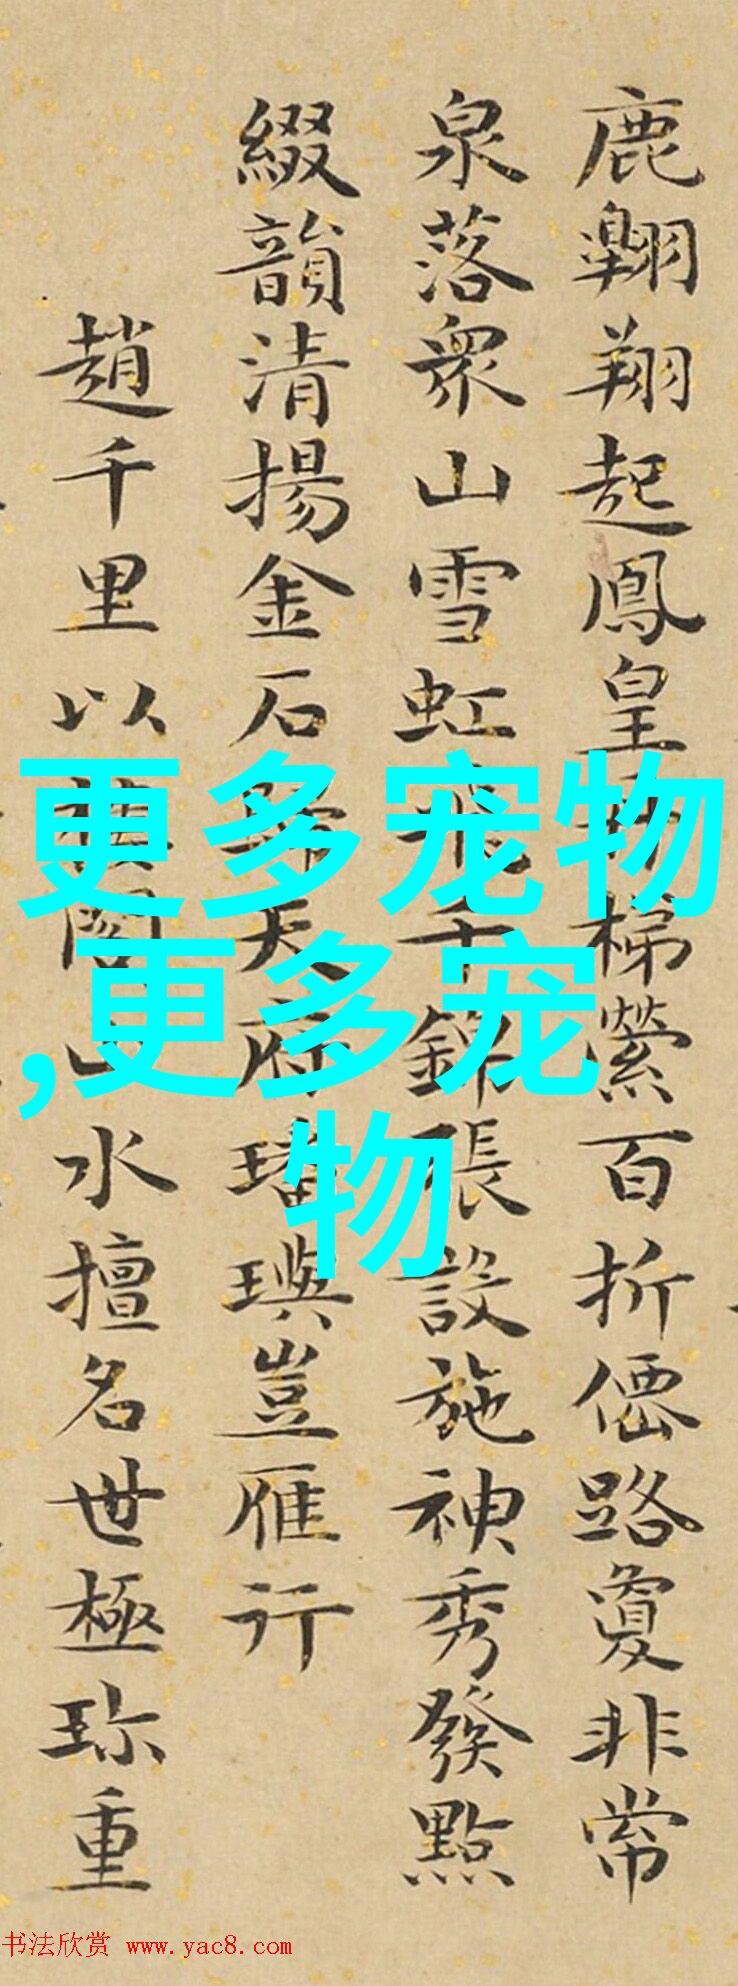 鹿翱翔起鳳皇
梯縈百折僊路敻非常
泉落衆山雪虹飛千錦張設施神秀發點
綴韻清揚金石
天府璠璵豈雁行
趙千里以
閣山水擅名世極珎重
更多宠物
,更多宠
物
书法欣赏 www.yac8.com